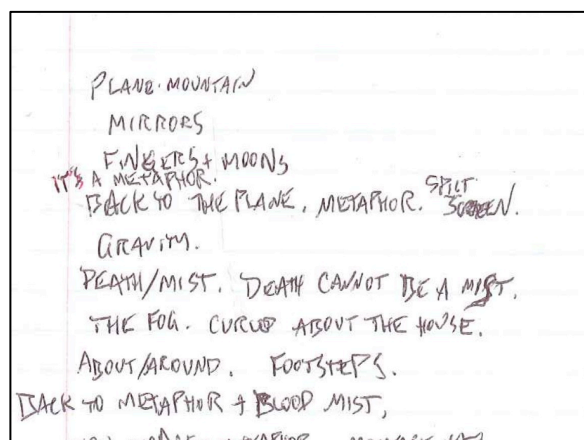 PLANE·MOUNTAIN
MIRRORS
FINGERS + MOONS
IT'S A METAPHOR.
BACK TO THE PLANE, METAPHOR. SPLIT SCREEN.
GRAVITY.
DEATH/MIST. DEATH CANNOT BE A MIST.
THE FOG. CURLED ABOUT THE HOUSE.
ABOUT/AROUND. FOOTSTEPS.
BACK TO METAPHOR + BLOOD MIST,
METAPHOR